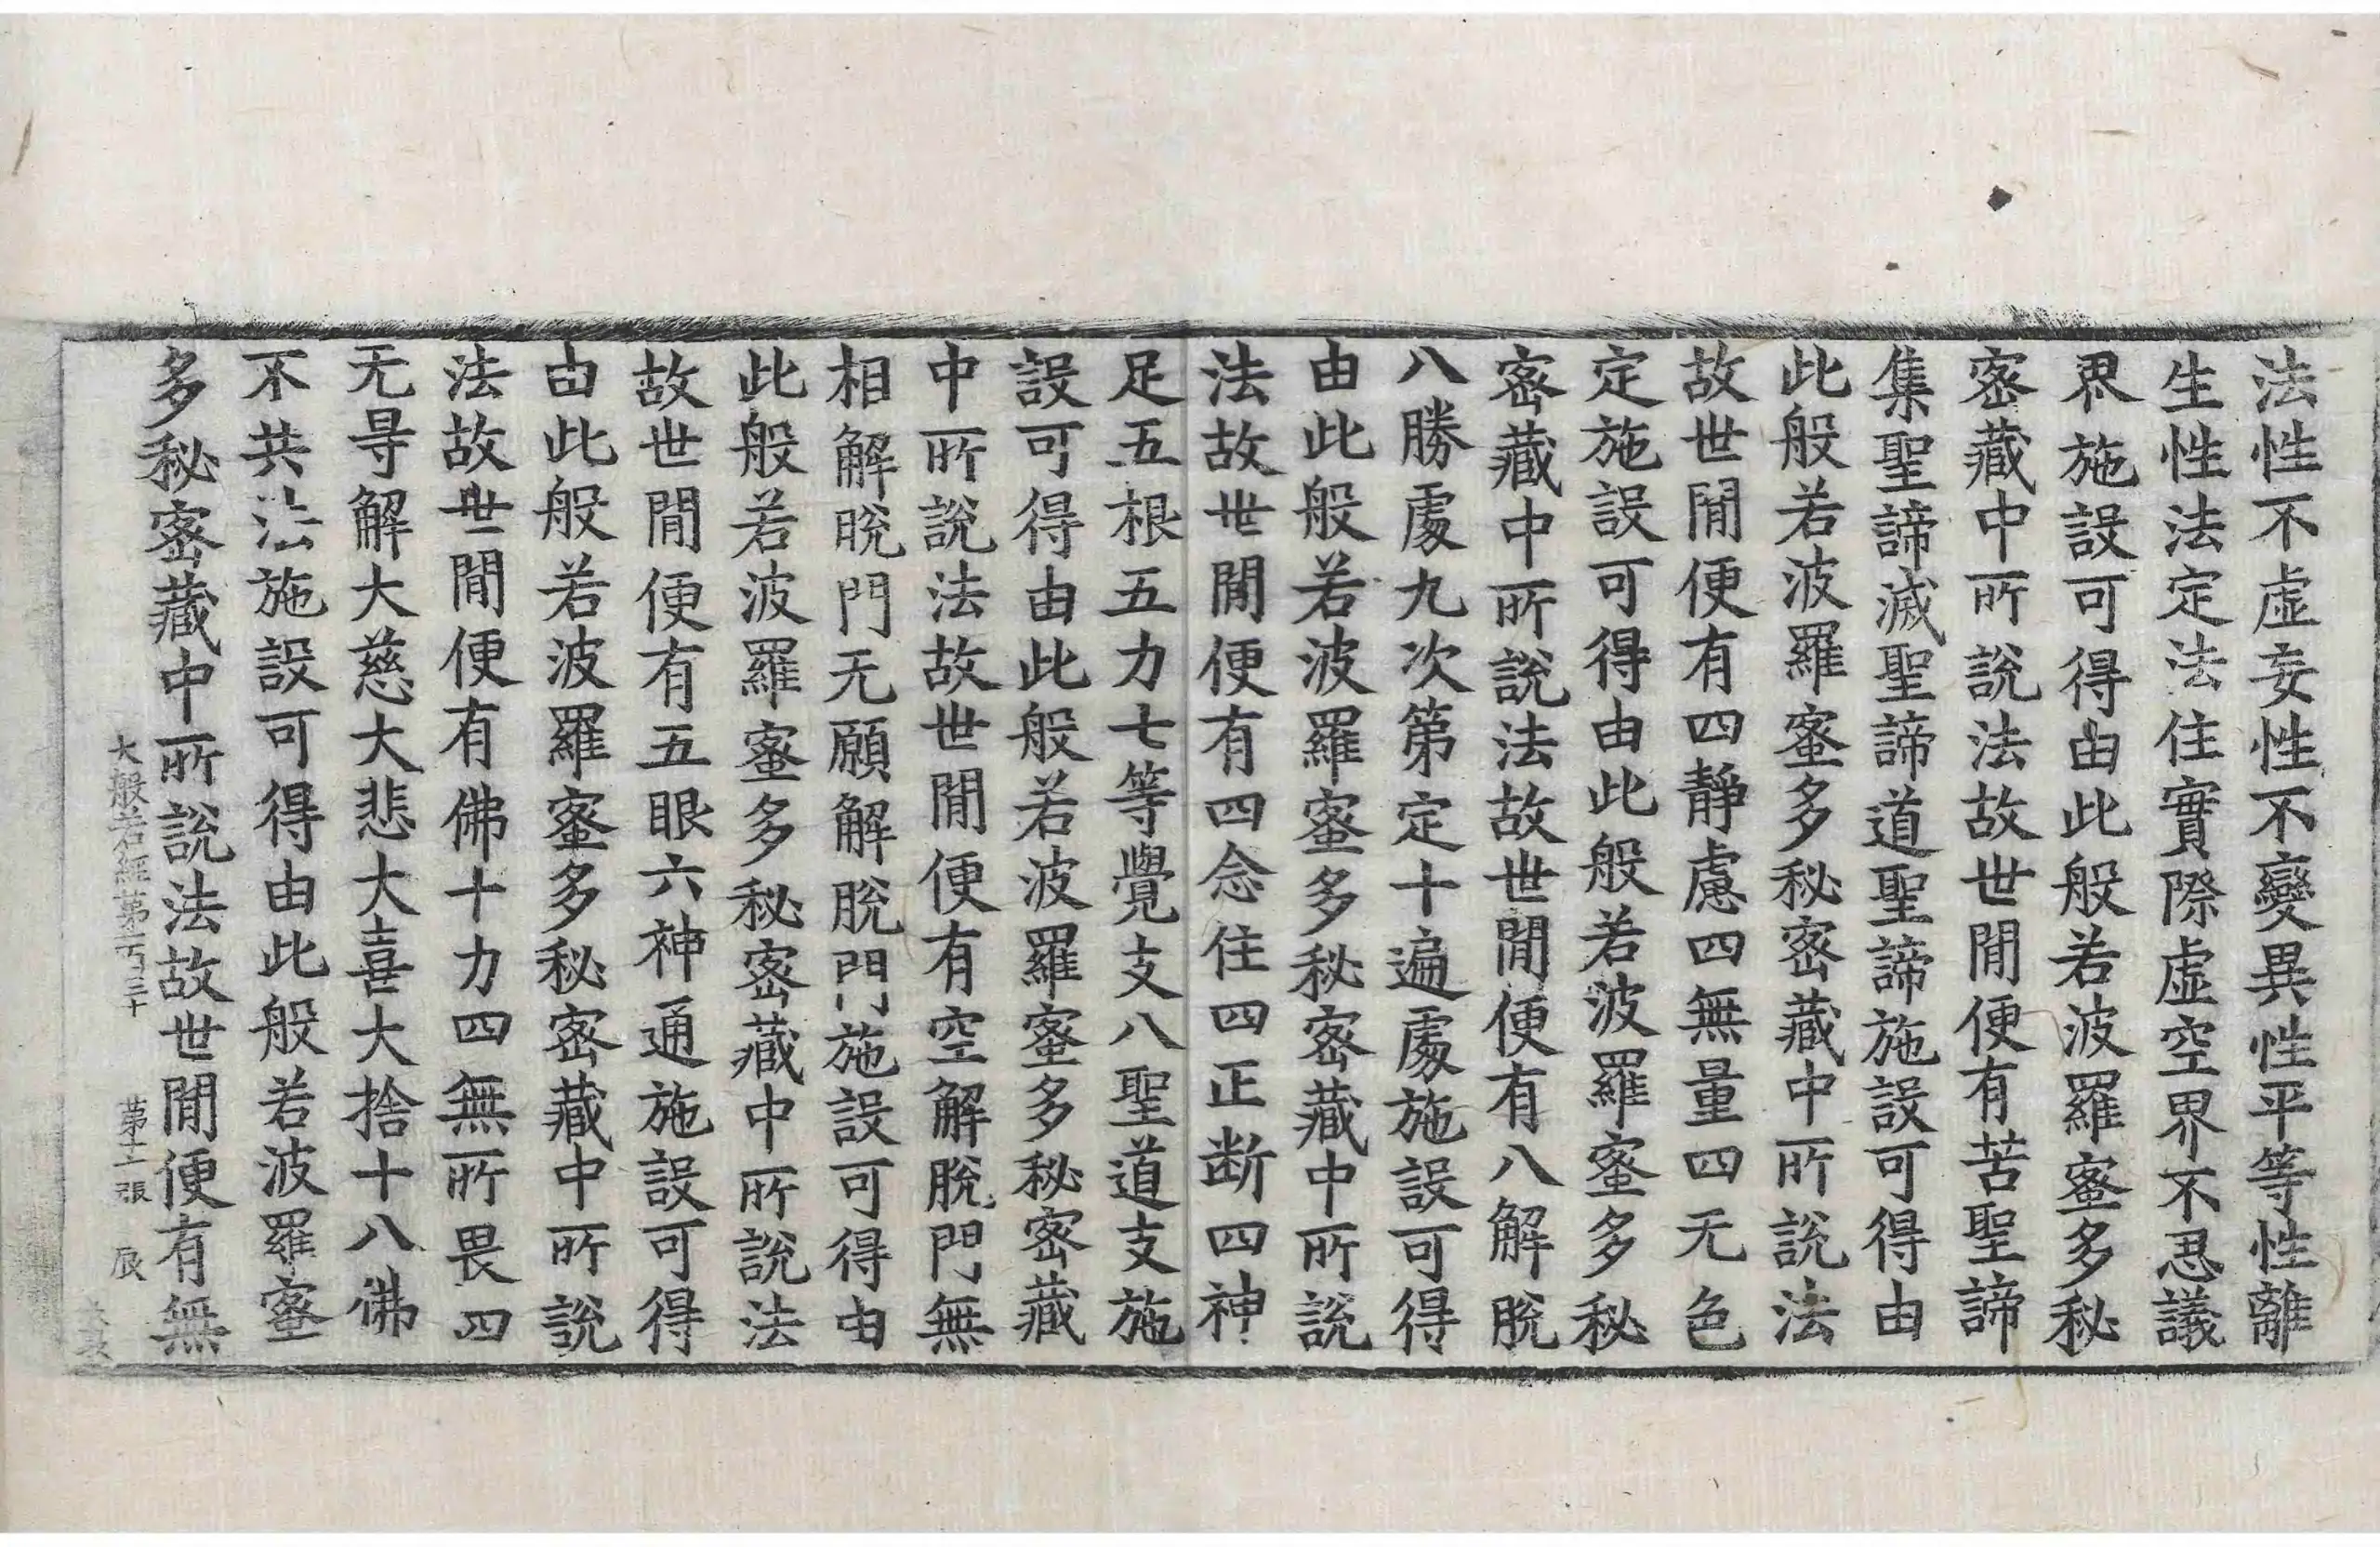 法性不虛妄性不變異性平等性離
生性法定法住實際虛空界不思議
界施設可得由此般若波羅蜜多秘
密藏中所說法故世間便有苦聖諦
集聖諦滅聖諦道聖諦施設可得由
此般若波羅蜜多秘密藏中所說法
故世間便有四靜慮四無量四无色
定施設可得由此般若波羅蜜多秘
密藏中所說法故世間便有八解脫
八勝處九次第定十遍處施設可得
由此般若波羅蜜多秘密藏中所說
法故世間便有四念住四正斷四神
足五根五力七等覺支八聖道支施
設可得由此般若波羅蜜多秘密藏
中所說法故世間便有空解脫門無
相解脫門无願解脫門施設可得由
此般若波羅蜜多秘密藏中所說法
故世間便有五眼六神通施設可得
由此般若波羅蜜多秘密藏中所說
法故世間便有佛十力四無所畏四
无㝵解大慈大悲大喜大捨十八佛
不共法施設可得由此般若波羅蜜
多秘密藏中所說法故世間便有無
大般若經第一百三十 第十二張 辰